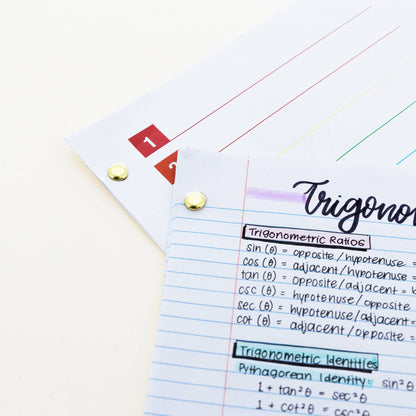 1
2
Trigono
Trigonometric Ratios
sin (θ) = opposite/hypotenuse =
cos (θ) = adjacent/hypotenuse =
tan (θ) = opposite/adjacent =
csc (θ) = hypotenuse/opposite
sec (θ) = hypotenuse/adjacent
cot (θ) = adjacent/opposite =
Trigonometric Identities
Pythagorean Identity: sin²θ
1 + tan²θ = sec²θ
1 + cot²θ = csc²θ